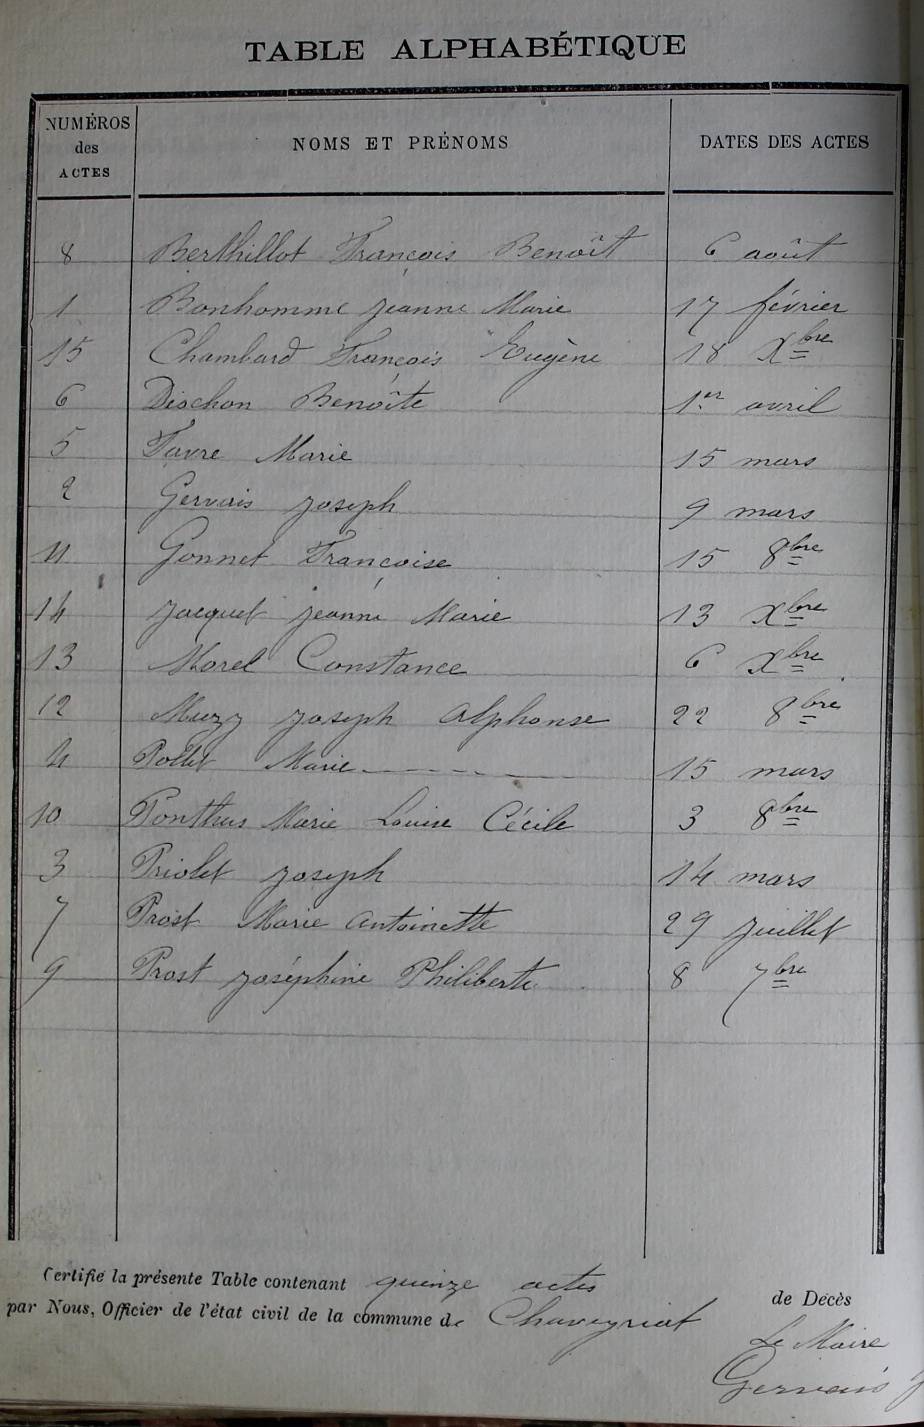 TABLE ALPHABÉTIQUE
NUMÉROS des ACTES NOMS ET PRÉNOMS DATES DES ACTES
8 Berthillot François Benoît 6 août
1 Bonhomme Jeanne Marie 17 février
15 Chambard François Eugène 18 Xbre
6 Dischon Benoîte 1er avril
5 Favre Marie 15 mars
2 Gervais Joseph 9 mars
11 Gonnet Françoise 15 8bre
14 Jacquet Jeanne Marie 13 Xbre
13 Morel Constance 6 Xbre
12 Muzy Joseph Alphonse 22 8bre
4 Pollet Marie 15 mars
10 Ponthus Marie Louise Cécile 3 8bre
3 Priolet Joseph 14 mars
7 Prost Marie Antoinette 29 Juillet
9 Prost Joséphine Philiberte 8 7bre
Certifié la présente Table contenant quinze actes de Décès
par Nous, Officier de l'état civil de la commune de Chaveyriat
Le Maire
Gervais